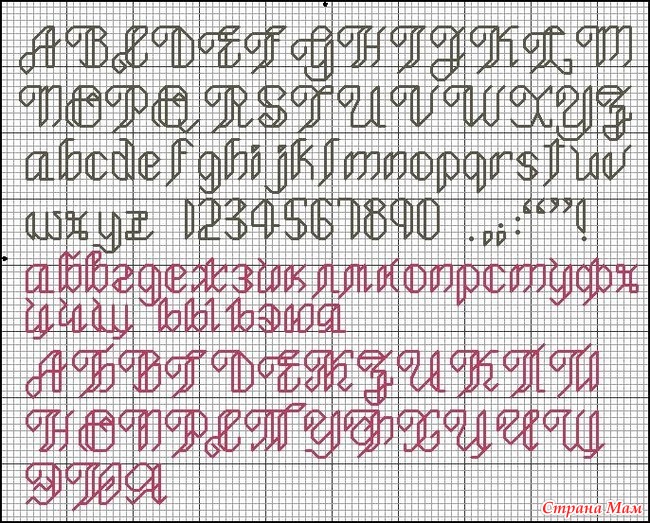 A B C D E F G H I J K L M
N O P Q R S T U V W X Y Z
a b c d e f g h i j k l m n o p q r s t u v
w x y z 1 2 3 4 5 6 7 8 9 0 . , ; : “ ” !
а б в г д е ж з и к л м н о п р с т у ф х
ц ч ш щ ъ ы ь э ю я
А Б В Г Д Е Ж З И К Л М
Н О П Р С Т У Ф Х Ц Ч Ш
Э Ю Я
Страна Мам